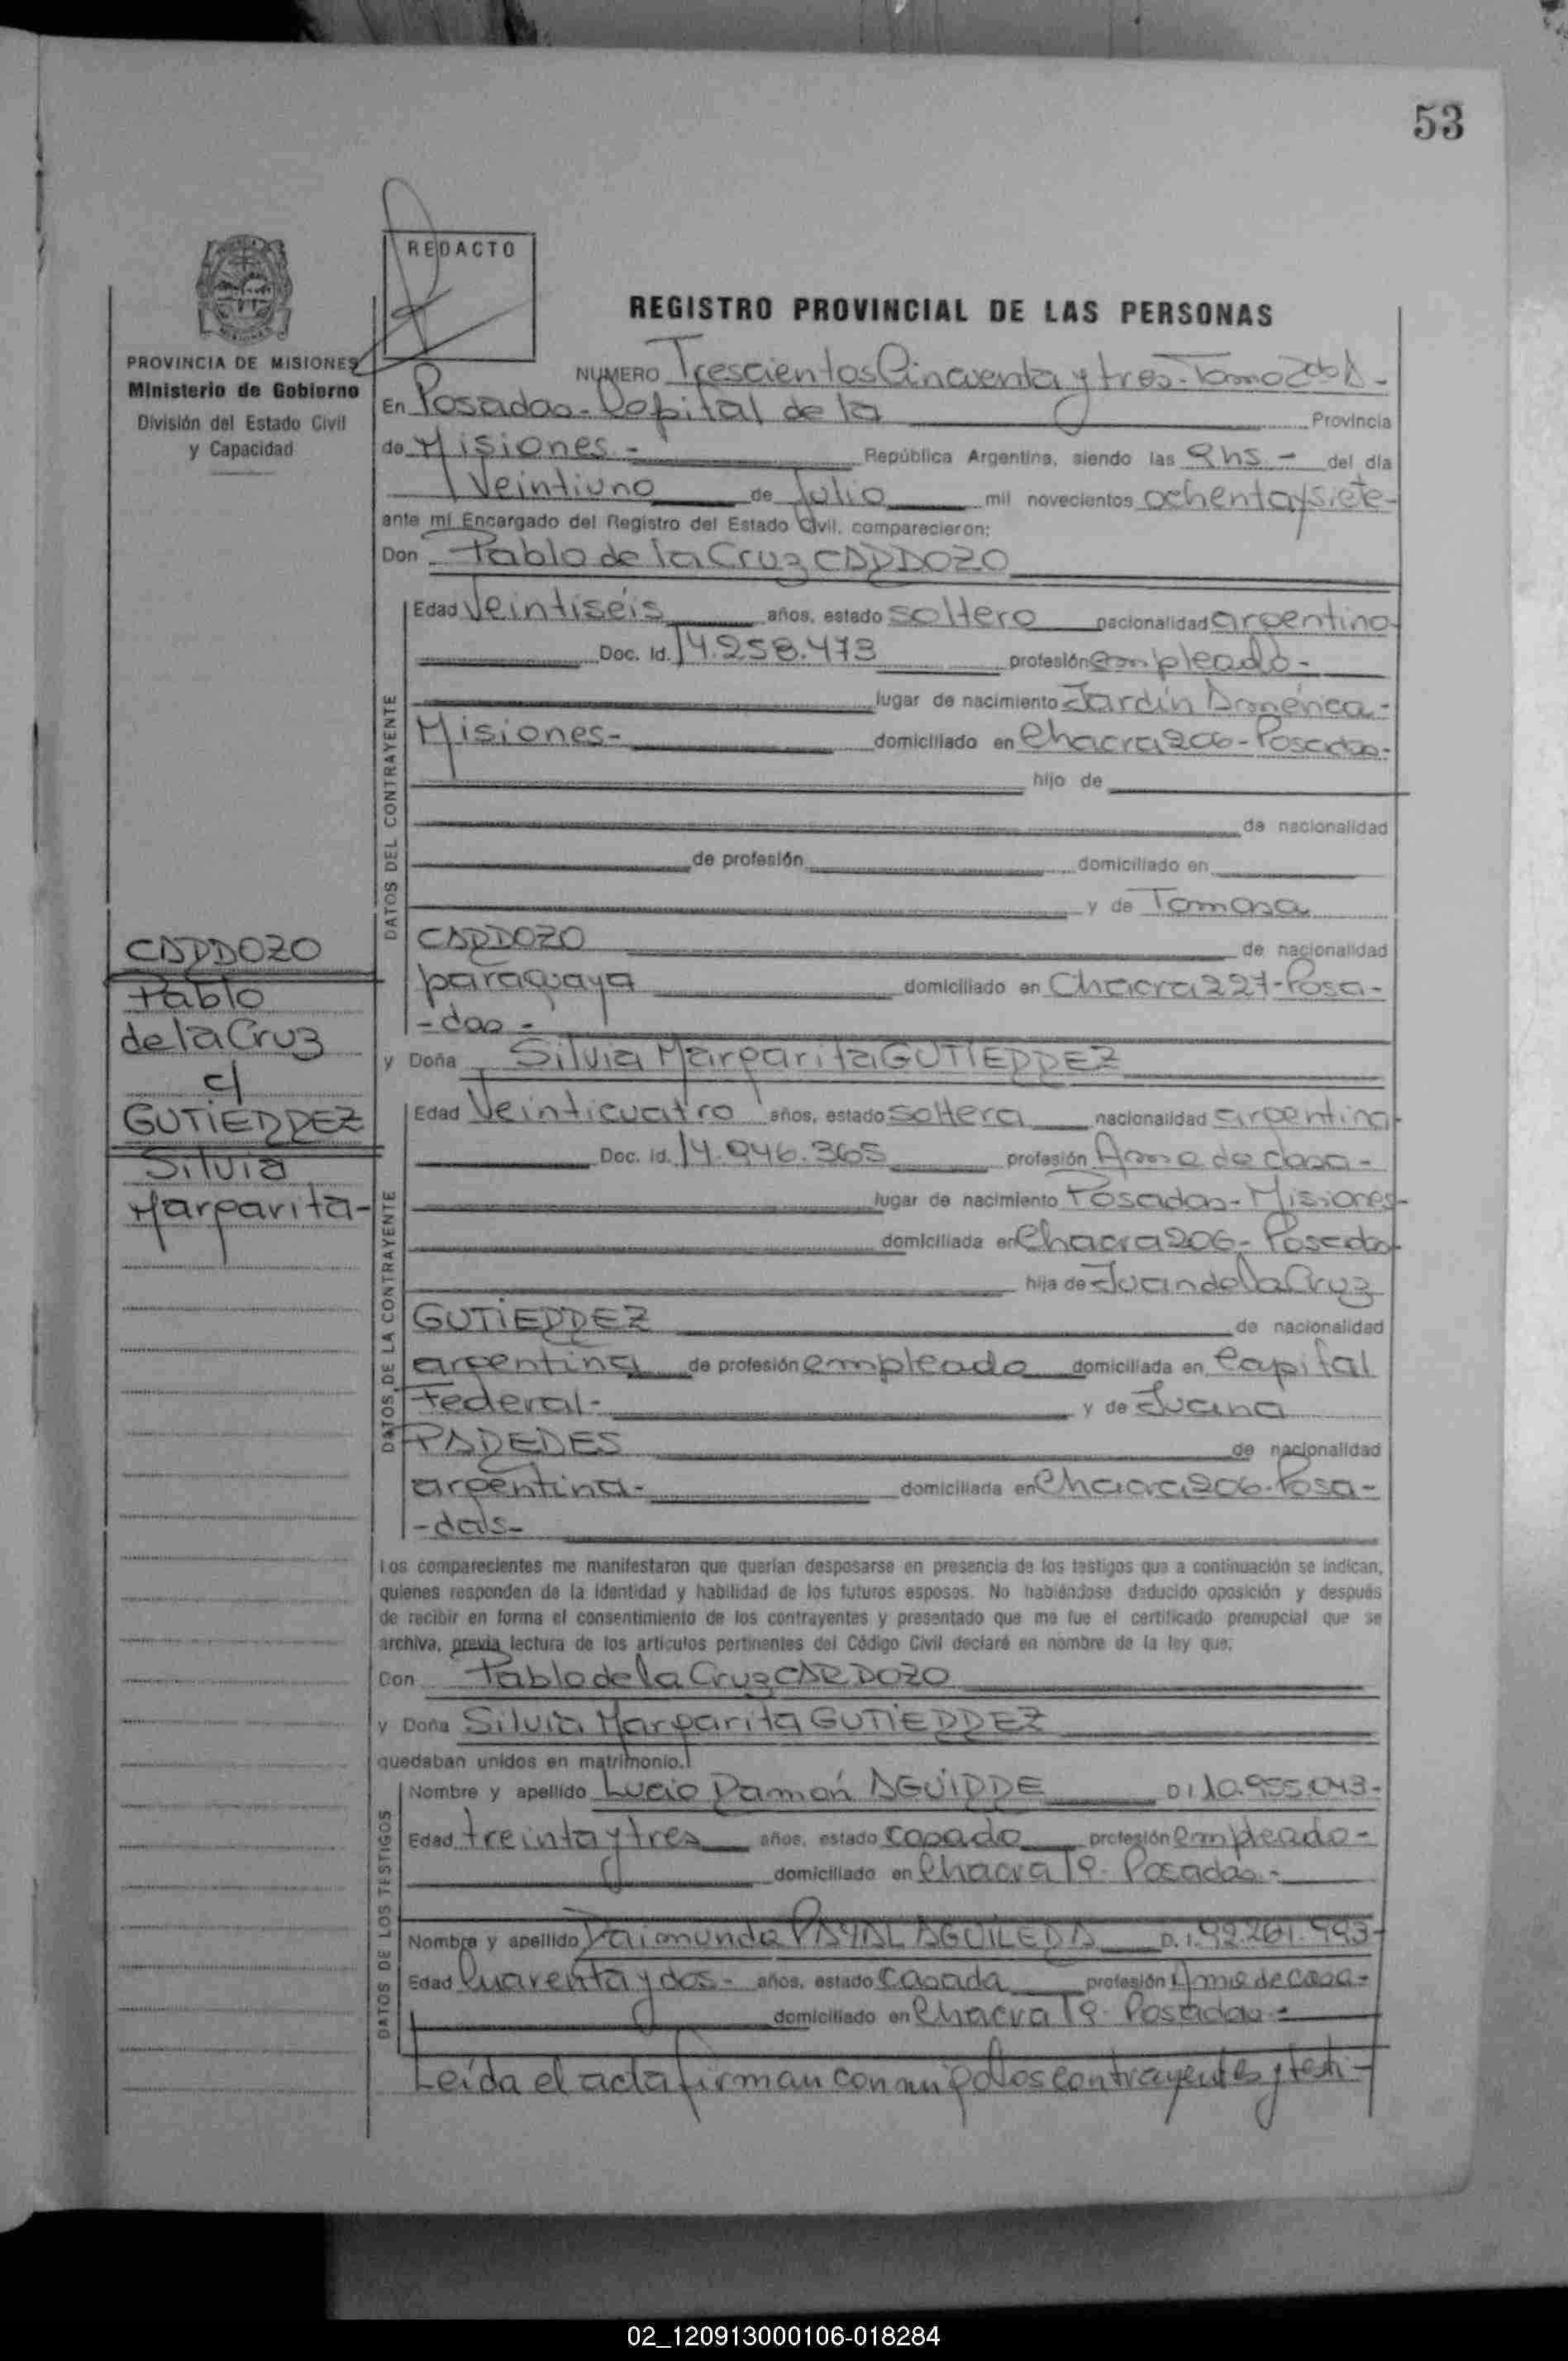 53
REDACTO
PROVINCIA DE MISIONES
Ministerio de Gobierno
División del Estado Civil
y Capacidad
REGISTRO PROVINCIAL DE LAS PERSONAS
NUMERO Trescientos Cincuenta y tres - Tomo
En Posadas - Capital de la Provincia
de Misiones - República Argentina, siendo las hs - del día
Veintiuno de Julio mil novecientos ochenta y siete -
ante mí Encargado del Registro del Estado Civil, comparecieron:
Don Pablo de la Cruz CARDOZO
DATOS DEL CONTRAYENTE
Edad Veintiséis años, estado soltero nacionalidad argentino
Doc. Id. 14.258.473 profesión empleado -
lugar de nacimiento Jardín América -
Misiones - domiciliado en Chacra 206 - Posadas -
hijo de
de nacionalidad
de profesión domiciliado en
y de Tomasa
CARDOZO de nacionalidad
paraguaya domiciliado en Chacra 227 - Posa -
- das -
CARDOZO
Pablo
de la Cruz
c/
GUTIERREZ
Silvia
Margarita -
y Doña Silvia Margarita GUTIERREZ
DATOS DE LA CONTRAYENTE
Edad Veinticuatro años, estado soltera nacionalidad argentina
Doc. Id. 14.946.365 profesión Ama de casa -
lugar de nacimiento Posadas - Misiones -
domiciliada en Chacra 206 - Posadas
hija de Juan de la Cruz
GUTIERREZ de nacionalidad
argentina de profesión empleado domiciliada en Capital
Federal - y de Juana
PAREDES de nacionalidad
argentina - domiciliada en Chacra 206 - Posa -
- das -
Los comparecientes me manifestaron que querían desposarse en presencia de los testigos que a continuación se indican,
quienes responden de la identidad y habilidad de los futuros esposos. No habiéndose deducido oposición y después
de recibir en forma el consentimiento de los contrayentes y presentado que me fue el certificado prenupcial que se
archiva, previa lectura de los artículos pertinentes del Código Civil declaré en nombre de la ley que:
Don Pablo de la Cruz CARDOZO
y Doña Silvia Margarita GUTIERREZ
quedaban unidos en matrimonio.
DATOS DE LOS TESTIGOS
Nombre y apellido Lucio Ramón AGUIRRE D.I. 10.955.043 -
Edad treinta y tres años, estado casado profesión empleado -
domiciliado en Chacra Posadas -
Nombre y apellido Raimunda AGUILERA D.I. 92.261.993 -
Edad Cuarenta y dos - años, estado Casada profesión Ama de Casa -
domiciliado en Chacra Posadas -
Leída el acta firman conmigo los contrayentes y testi -
02_120913000106-018284